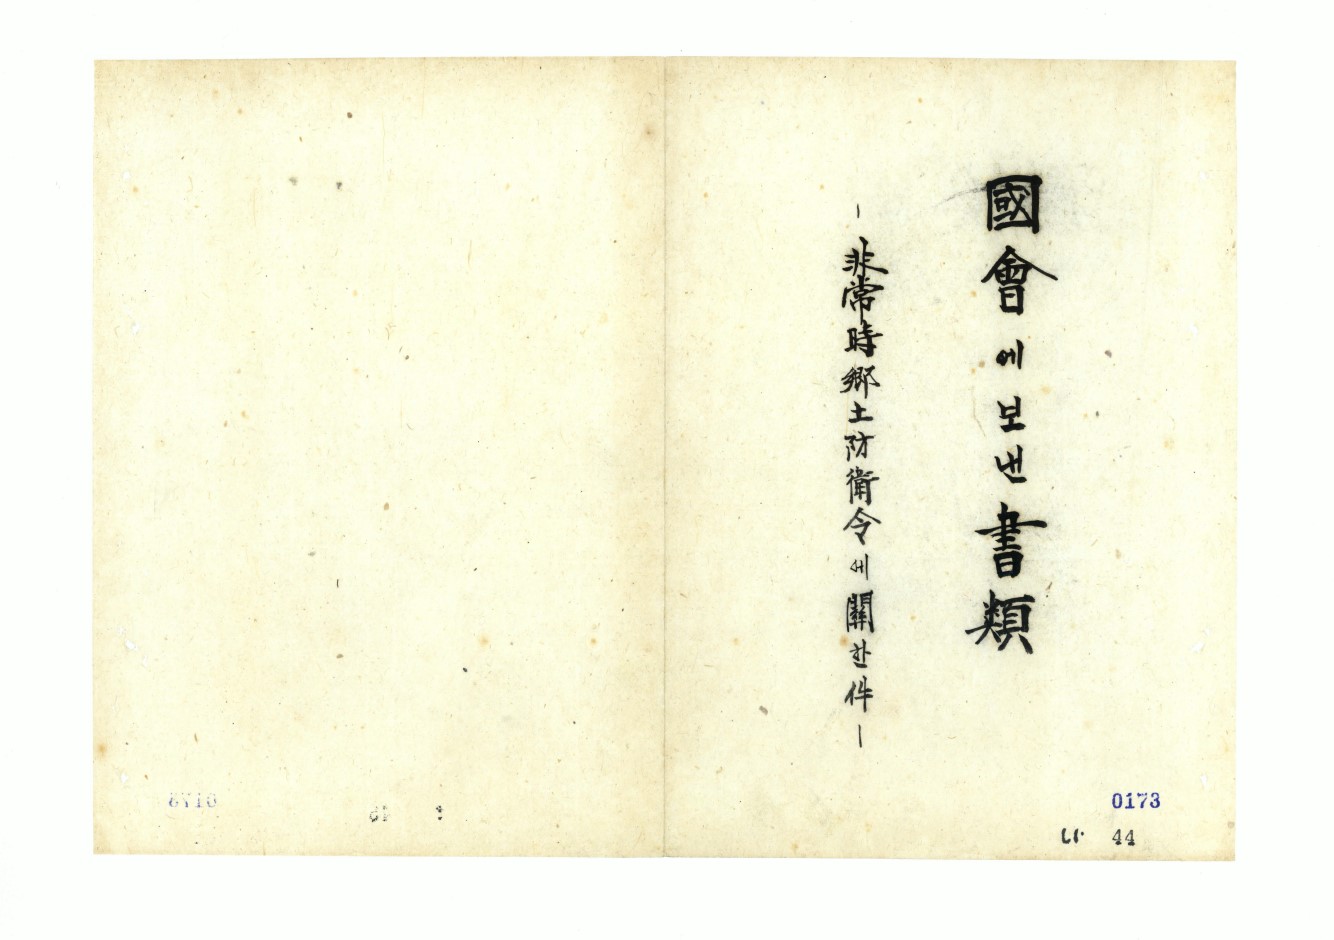 國會에보낸書類
|非常時鄕土防衛令에關한件|
0173
나 44